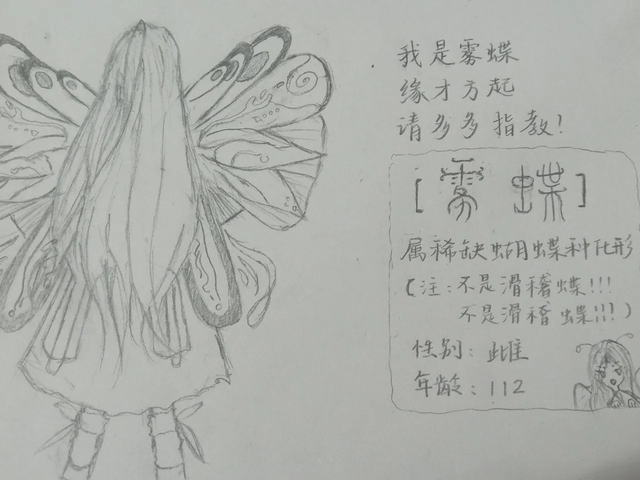 我是雾蝶
缘才方起
请多多指教!
[雾 蝶]
属稀缺蝴蝶种化形
(注:不是滑稽蝶!!!
不是滑稽蝶!!!)
性别:雌
年龄:112